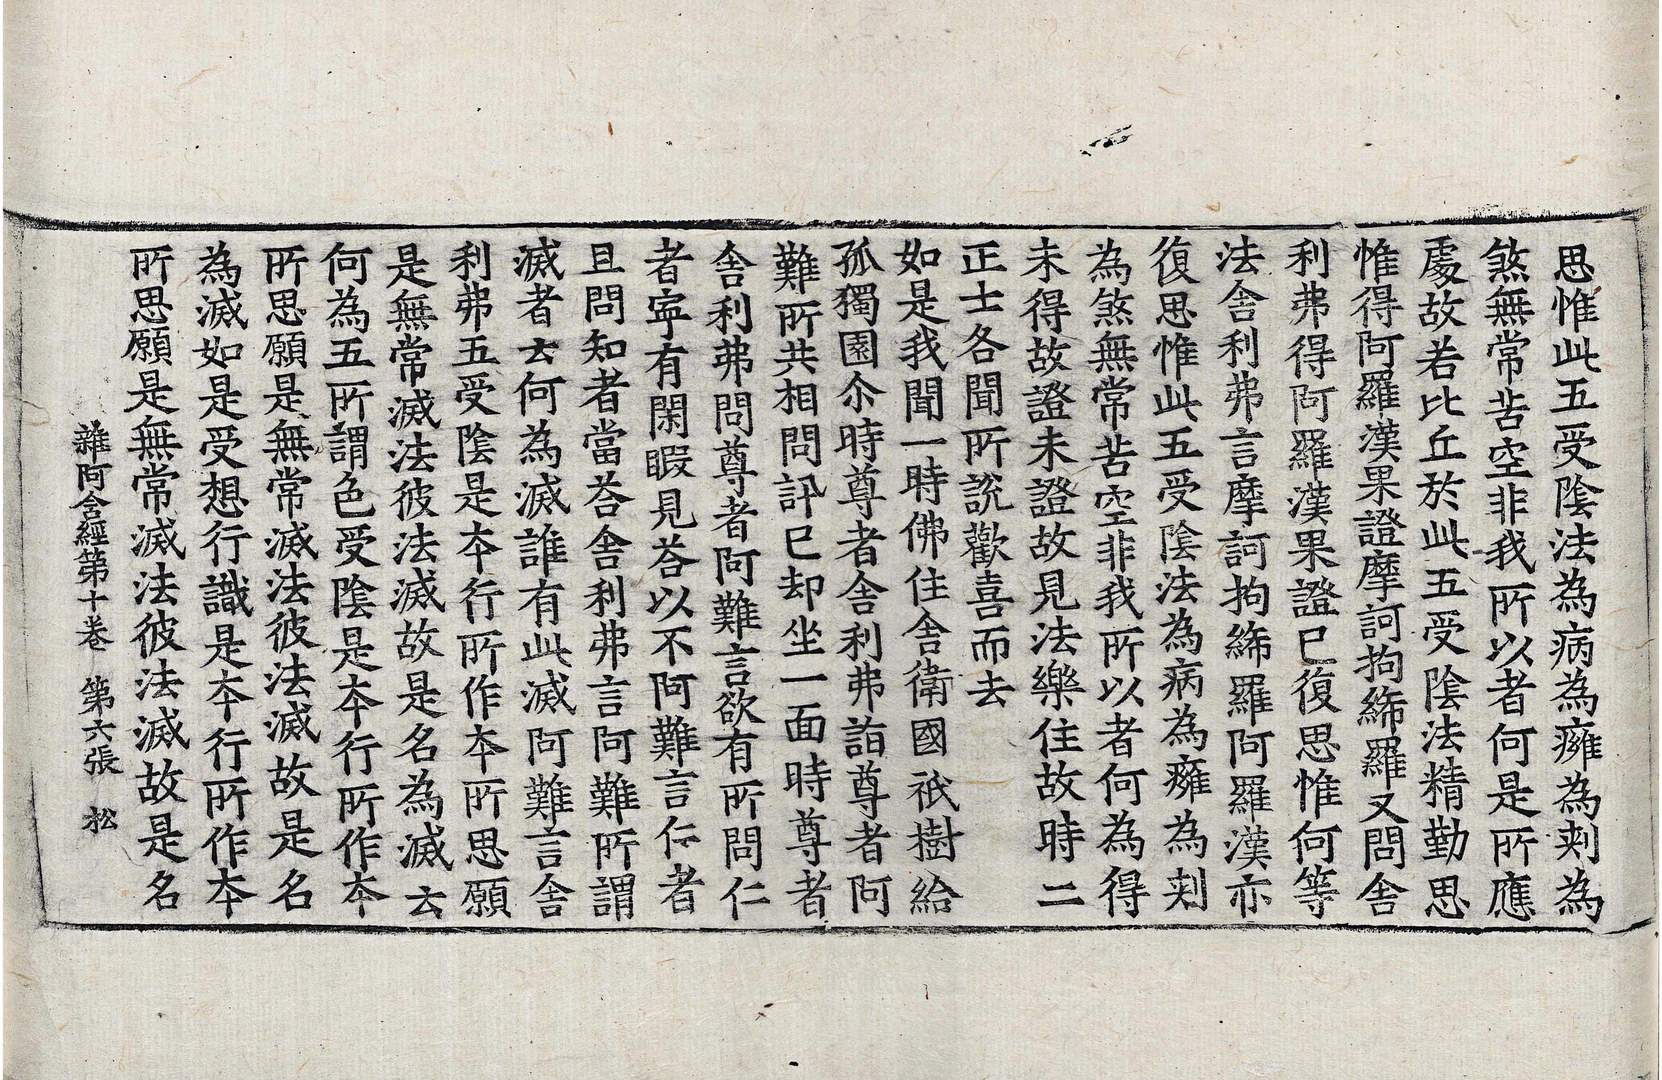 思惟此五受陰法為病為癰為刾為
煞無常苦空非我所以者何是所應
處故若比丘於此五受陰法精勤思
惟得阿羅漢果證摩訶拘絺羅又問舍
利弗得阿羅漢果證已復思惟何等
法舍利弗言摩訶拘絺羅阿羅漢亦
復思惟此五受陰法為病為癰為刾
為煞無常苦空非我所以者何為得
未得故證未證故見法樂住故時二
正士各聞所說歡喜而去
如是我聞一時佛住舍衛國祇樹給
孤獨園尒時尊者舍利弗詣尊者阿
難所共相問訊已却坐一面時尊者
舍利弗問尊者阿難言欲有所問仁
者寧有閑暇見荅以不阿難言仁者
且問知者當荅舍利弗言阿難所謂
滅者云何為滅誰有此滅阿難言舍
利弗五受陰是夲行所作夲所思願
是無常滅法彼法滅故是名為滅云
何為五所謂色受陰是夲行所作夲
所思願是無常滅法彼法滅故是名
為滅如是受想行識是夲行所作夲
所思願是無常滅法彼法滅故是名
雜阿含經第十卷　第六張　松